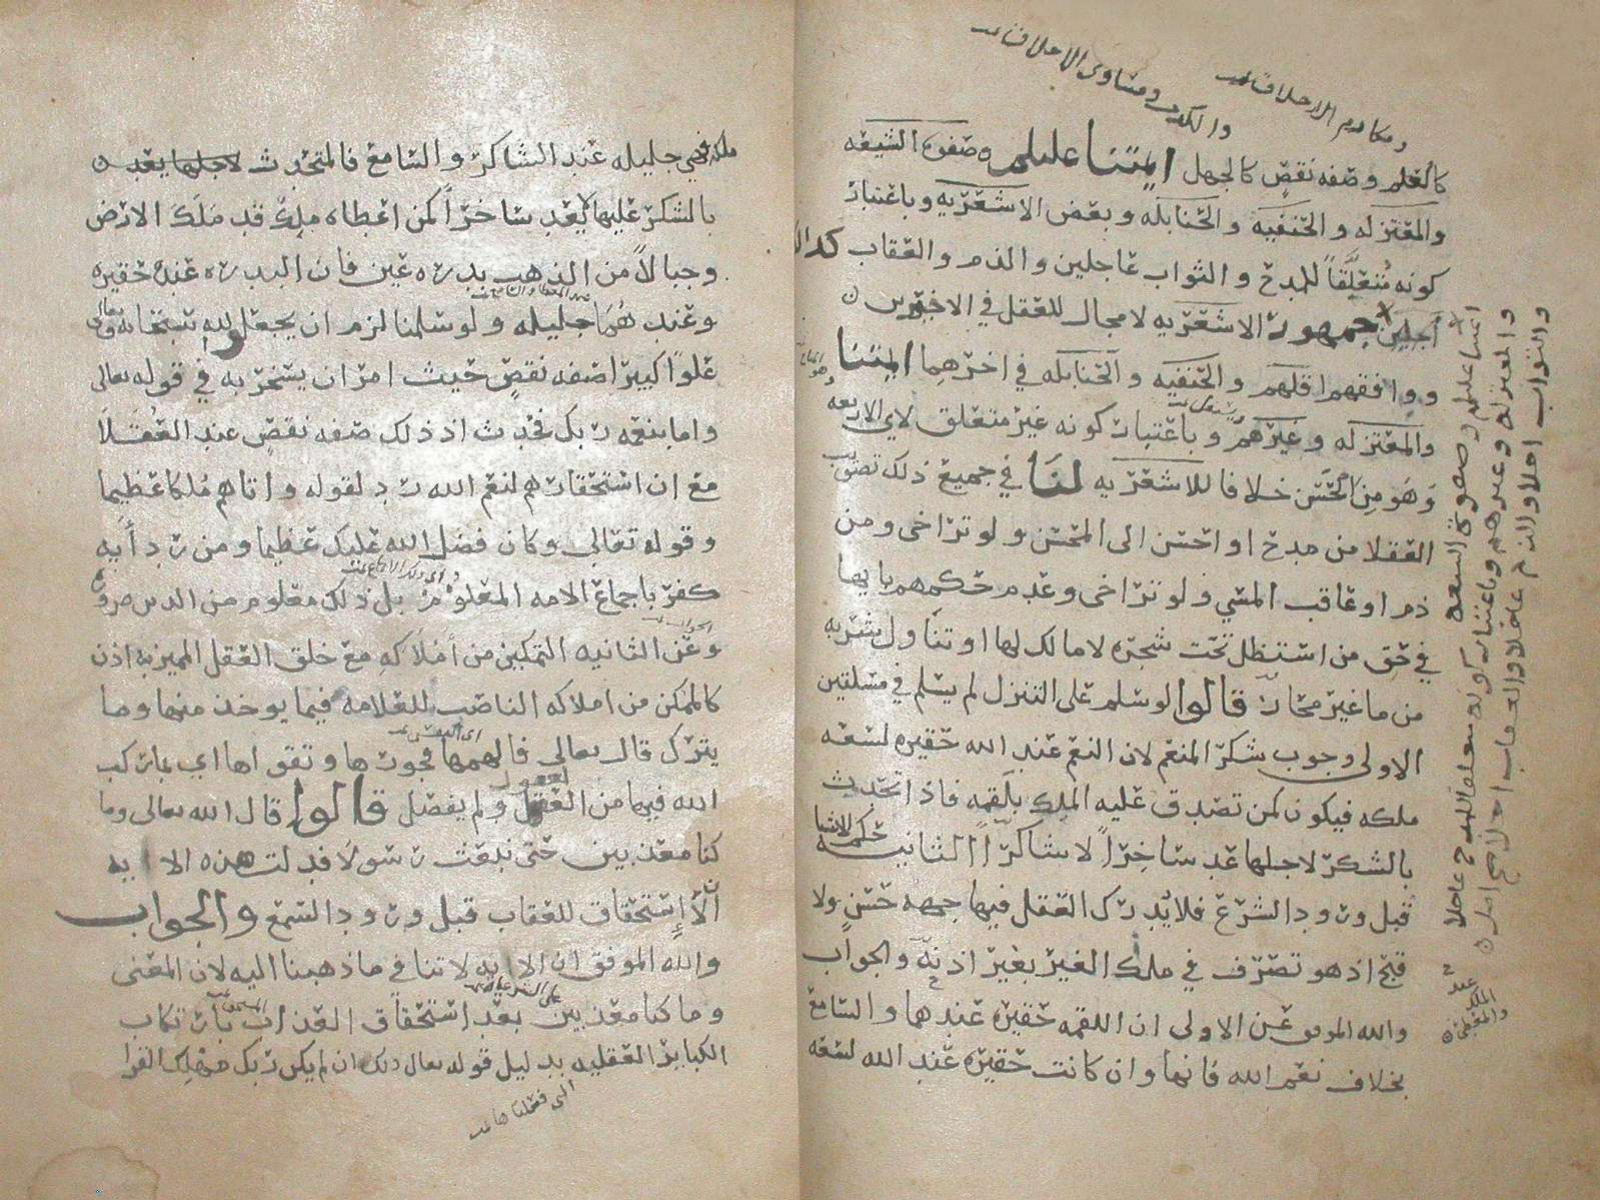 ومكارم الاخلاق تمت
والكذب ومساوي الاخلاق تمت
كالعلم وصفه نقص كالجهل ايمتنا عليلم وصفوة الشيعه
والمعتزله والحنفيه والحنابله وبعض الاشعريه وباعتبار
كونه متعلقاً للمدح والثواب عاجلين والذم والعقاب كذلك
اجلين جمهور الاشعريه لا مجال للعقل في الاخيرين
ووافقهم اقلهم والحنفيه والحنابله في اخرهما ايمتنا
والمعتزله وغيرهم وباعتبار كونه غير متعلق لاي الاربعه
وهو من الحسن خلافا للاشعريه لنا في جميع ذلك تصويب
العقلا من مدح او احسن الى المحسن ولو تراخى ومن
ذم او عاقب المسي ولو تراخى وعدم حكمهم بايها
في حق من استظل تحت شجره لا مالك لها او تناول شربه
من ما غير محاز قالوا لو سلم على التنزل لم يسلم في مسلتين
الاولى وجوب شكر المنعم لان النعم عند الله حقيره لسعه
ملكه فيكون كمن تصدق عليه الملك بلقمه فاذا تحدث
بالشكر لاجلها عد ساخراً لا شاكراً الثانيه حكم الاشيا
قبل ورود الشرع فلا يدرك العقل فيها جهه حسن ولا
قبح اذ هو تصرف في ملك الغير بغير اذنه والجواب
والله الموفق عن الاولى ان اللقمه حقيره عندهما والسامع
بخلاف نعم الله فانها وان كانت حقيره عند الله لسعه
ايمتنا عليلم وصفوة الشيعه
والمعتزله وغيرهم وباعتبار كونه متعلقا للمدح عاجلا
والثواب اجلا والذم عاجلا والعقاب اجلا
عند
الملك
والمعطى
ملكه فهي جليله عند الشاكر والسامع فالمتحدث لاجلها يعد
بالشكر عليها لا يعد ساخراً كمن اعطاه ملك قد ملك الارض
وجبالاً من الذهب بدره عين فان البدره عنده حقيره
وعندهما جليله ولو سلمنا لزم ان يجعلوا لله سبحانه وتعالى
علواً كبيرا صفه نقص حيث امر ان يسخر به في قوله تعالى
واما بنعمه ربك فحدث اذ ذلك صفه نقص عند العقلا
مع ان استحقارهم لنعم الله رد لقوله واتاهم ملكا عظيما
وقوله تعالى وكان فضل الله عليك عظيما ومن رد أيه
كفر باجماع الامه المعلوم بل ذلك معلوم من الدين ضروره
وعن الثانيه التمكين من أملاكه مع خلق العقل المميز به اذن
كالممكن من املاكه الناصب للعلامه فيما يوخذ منها وما
يترك قال تعالى فالهمها فجورها وتقواها اي بما ركب
الله فيها من العقول ولم يفصل قالوا قال الله تعالى وما
كنا معذبين حتى نبعث رسولا فدلت هذه الايه
ان لا إستحقاق للعقاب قبل ورود السمع والجواب
والله الموفق ان الايه لا تنافي ما ذهبنا اليه لان المعنى
وما كنا معذبين بعد استحقاق العذاب بارتكاب
الكباير العقليه بدليل قوله تعالى ذلك ان لم يكن ربك مهلك القرا
التي فعلناها تمت